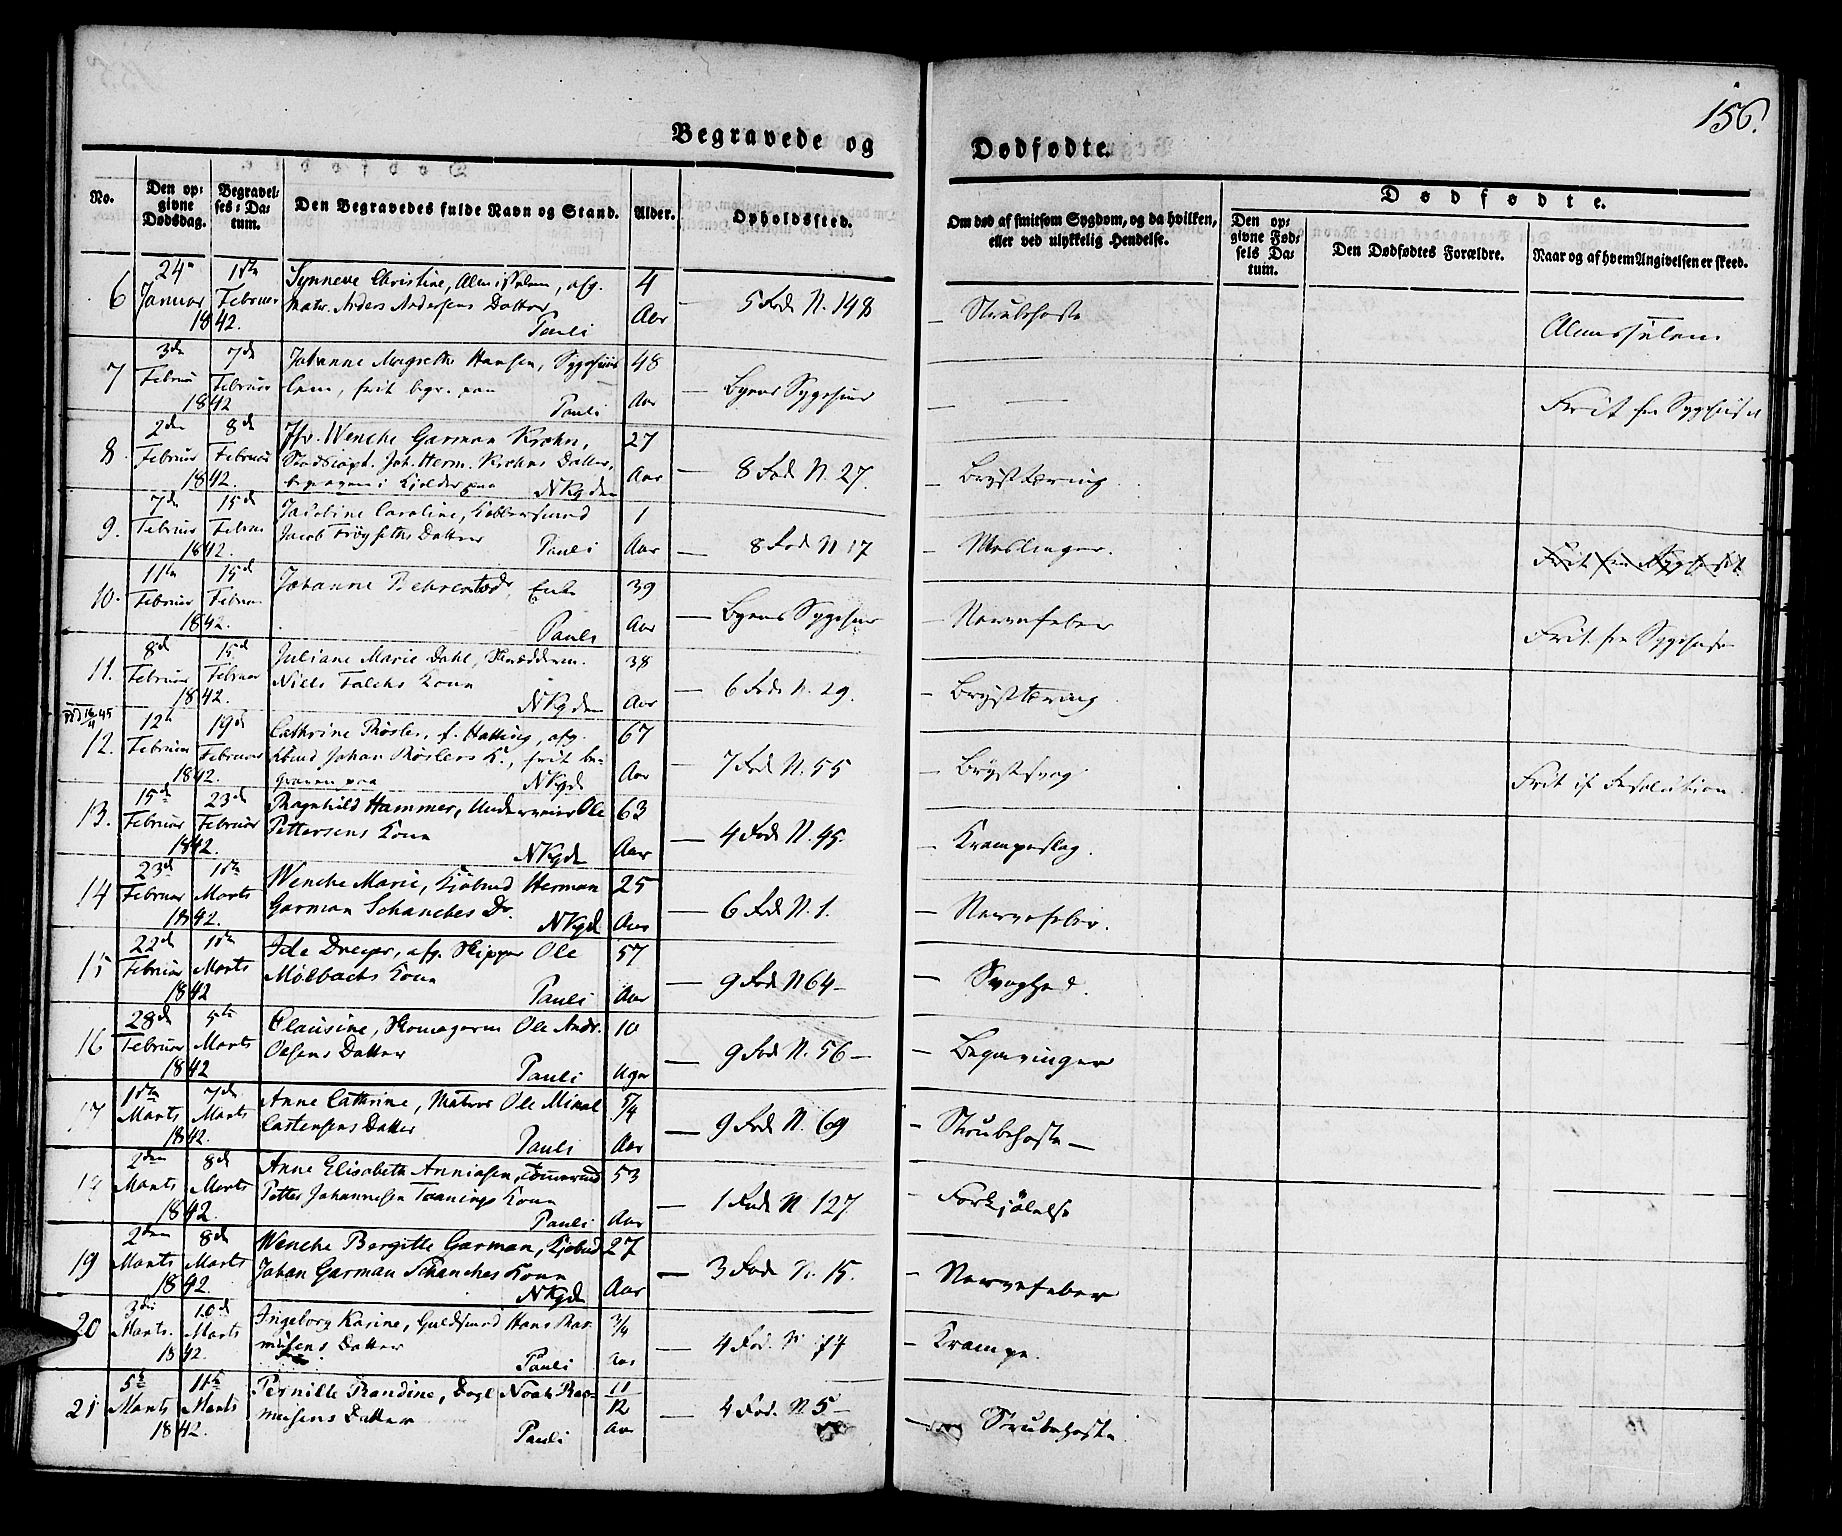 156.
Begravede og Dødfødte.
No.
Den opgivne Dødsdag.
Begravelses-Datum.
Den Begravedes fulde Navn og Stand.
Alder.
Opholdssted.
Om død af smitsom Sygdom, og da hvilken, eller ved ulykkelig Hendelse.
Dødfødte.
Den opgivne Fødsels Datum.
Den Dødfødtes Forældre.
Naar og af hvem Angivelsen er skeed.
6 24 Januar 1842. 1ste Februar Synneve Christine, afg. Matr. Anders Andersens Datter, Pauli 4 Aar
5 Rode N. 148 Strubehoste
7 3die Februar 1842 7de Februar Johanne Margrethe Hansen, Sygehuus
Lem, frit begr. paa Pauli 48 Aar
Byens Sygehuus Frit fra Sygehuset
8. 2den Februar 1842. 8de Februar Jfr. Wenche Garman Krohn,
Stadscapt. Joh. Herm. Krohns Datter,
i Kjelder paa NKgden 27 Aar
8 Rode N. 27. Brysttæring
9. 7de Februar 1842. 15de Februar Jacobine Caroline, Kobbersmed
Jacob Frøyseths Datter Pauli 1 Aar
8 Rode N 17 Meslinger.
10. 11te Februar 1842. 15de Februar Johanne Behrenstad, Enke
Pauli 39 Aar
Byens Sygehuus Nervefeber Frit fra Sygehuset
11. 8de Februar 1842. 15de Februar Juliane Marie Dahl, Skrædderm.
Niels Falchs Kone NKgden 38 Aar
6 Rode N. 29. Brysttæring
12. 12te Februar 1842. 19de Februar Cathrine Røsler, f. Hatting, afg.
Johan Røslers K., frit be-
graven paa NKgd 67 Aar
7 Rode N. 55 Brystsvag Frit if Resolution
13. 15de Februar 1842. 23de Februar Ragnhild Hammer, Ole
Pettersens Kone NKgd 63 Aar
4 Rode N. 45. Krampeslag.
14 23de Februar 1842. 1ste Marts Wenche Marie, Kjøbmd Herman
Garman Schanches Dr. NKgd 25 Aar
6 Rode N. 1. Nervefeber.
15 22de Februar 1842 1ste Marts Ide Dreyer, afg. Skipper Ole
Mølbachs Kone Pauli 57 Aar
9 Rode N 64 Svaghed.
16 28de Februar 1842 5te Marts Clausine, Skomagerm Ole Andr.
Olsens Datter Pauli 10 Uger
9 Rode N. 56 Begavinger
17 1ste Marts 1842. 7de Marts Anne Cathrine, Matros Ole Mikal
Castensens Datter Pauli 5/4 Aar
9 Rode N. 69 Strubehoste
18 2den Marts 1842. 8de Marts Anne Elisabeth Anniasen,
Petter Johannesen Kone Pauli 53 Aar
1 Rode N 127. Forkjølelse
19 2den Marts 1842. 8de Marts Wenche Bergitte Garman, Kjøbmd
Johan Garman Schanches Kone NKgd 27 Aar
3 Rode N. 15. Nervefeber
20 3die Marts. 1842. 10de Marts Ingeborg Karine, Guldsmed Hans Ras-
musens Datter Pauli 3/4 Aar
4 Rod. N 74 Krampe.
21 5te Marts 1842. 11te Marts Pernille Randine, Noah Ras-
musens Datter Pauli 11/12 Aar
4 Rod. N. 5 Strubehoste.